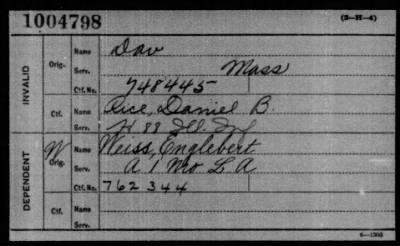 1004798
(3-H-4)
INVALID
Orig.
Name Dav
Serv. Mass
Ctf. No. 748445
Ctf.
Name Rice, Daniel B.
Serv. H 88 Ill. Inf
DEPENDENT
W
Orig.
Name Weiss, Englebert
Serv. A 1 Mo L A
Ctf. No. 762344
Ctf.
Name
Serv.
6—1302